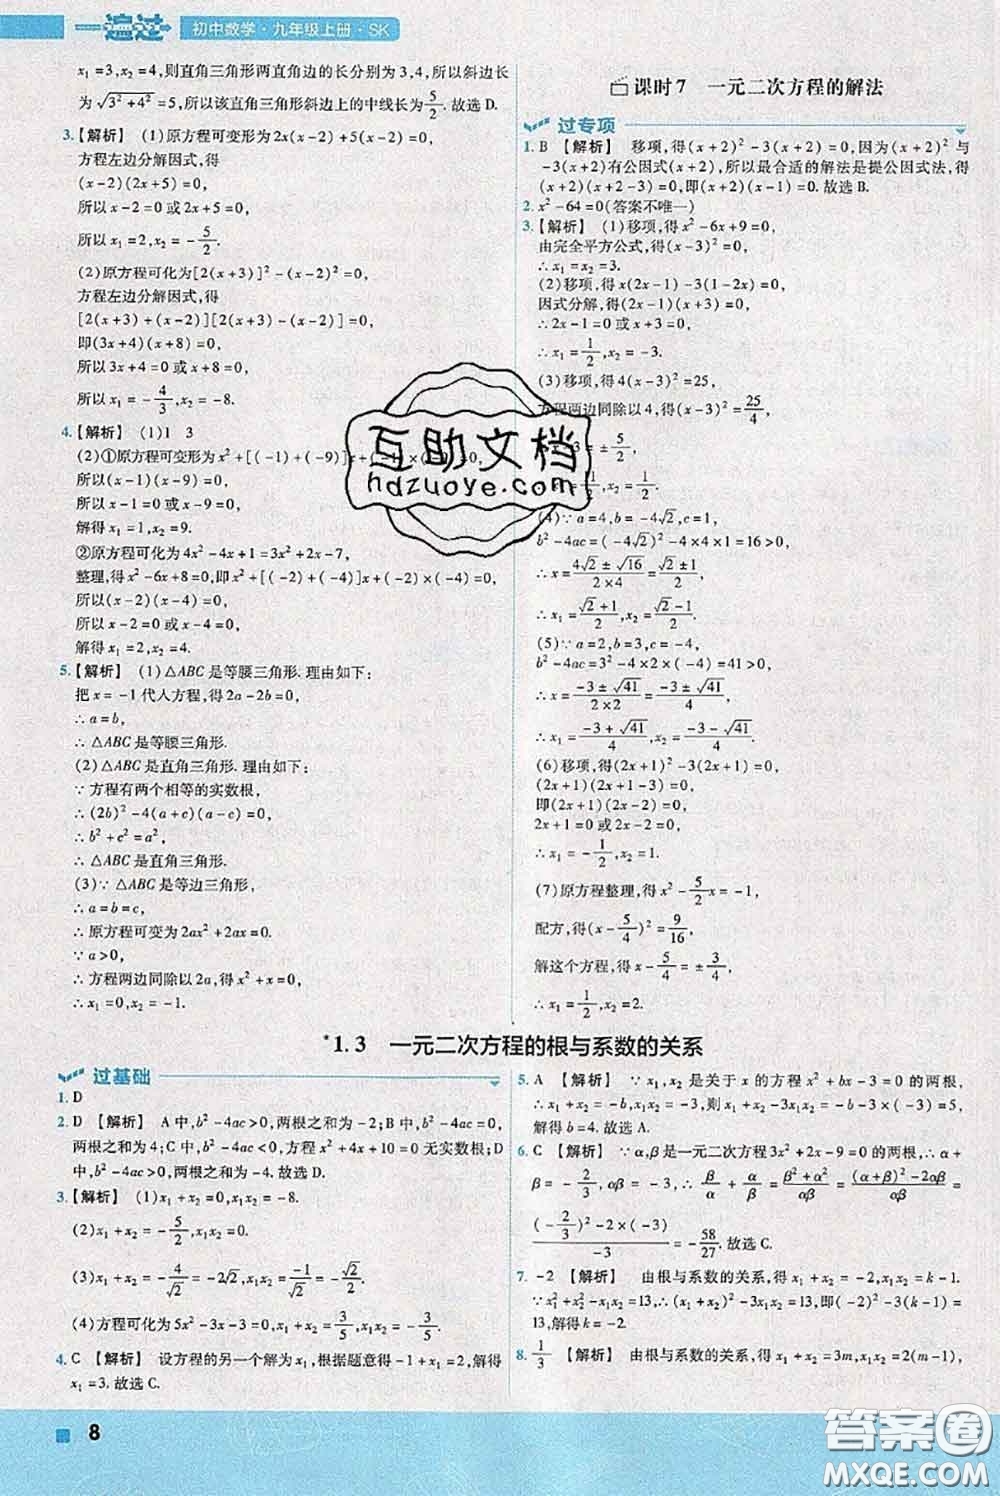 一遍过 初中数学·九年级上册·SK
x₁=3,x₂=4,则直角三角形两直角边的长分别为3,4,所以斜边长
为√(3²+4²)=5,所以该直角三角形斜边上的中线长为5/2.故选D.
3.【解析】 (1)原方程可变形为2x(x-2)+5(x-2)=0,
方程左边分解因式,得
(x-2)(2x+5)=0,
所以x-2=0或2x+5=0,
所以x₁=2,x₂=-5/2.
(2)原方程可化为[2(x+3)]²-(x-2)²=0,
方程左边分解因式,得
[2(x+3)+(x-2)][2(x+3)-(x-2)]=0,
即(3x+4)(x+8)=0,
所以3x+4=0或x+8=0,
所以x₁=-4/3,x₂=-8.
4.【解析】 (1)1 3
(2)①原方程可变形为x²+[(-1)+(-9)]x+(-1)×(-9)=0,
所以(x-1)(x-9)=0,
所以x-1=0或x-9=0,
解得x₁=1,x₂=9.
②原方程可化为4x²-4x+1=3x²+2x-7,
整理,得x²-6x+8=0,即x²+[(-2)+(-4)]x+(-2)×(-4)=0,
所以(x-2)(x-4)=0,
所以x-2=0或x-4=0,
解得x₁=2,x₂=4.
5.【解析】 (1)△ABC是等腰三角形.理由如下:
把x=-1代入方程,得2a-2b=0,
∴a=b,
∴△ABC是等腰三角形.
(2)△ABC是直角三角形.理由如下:
∵方程有两个相等的实数根,
∴(2b)²-4(a+c)(a-c)=0,
∴b²+c²=a²,
∴△ABC是直角三角形.
(3)∵△ABC是等边三角形,
∴a=b=c,
∴原方程可变为2ax²+2ax=0.
∵a>0,
∴方程两边同除以2a,得x²+x=0,
∴x₁=0,x₂=-1.
课时7 一元二次方程的解法
过专项
1. B 【解析】 移项,得(x+2)²-3(x+2)=0,因为(x+2)²与
-3(x+2)有公因式(x+2),所以最合适的解法是提公因式法,得
(x+2)(x+2-3)=0,即(x+2)(x-1)=0.故选B.
2. x²-64=0(答案不唯一)
3.【解析】 (1)移项,得x²-6x+9=0,
由完全平方公式,得(x-3)²=0,
∴x₁=x₂=3.
(2)移项,得x(2x-1)-3(1-2x)=0,
因式分解,得(2x-1)(x+3)=0,
∴2x-1=0或x+3=0,
∴x₁=1/2,x₂=-3.
(3)移项,得4(x-3)²=25,
方程两边同除以4,得(x-3)²=25/4,
∴x-3=±5/2,
(4)∵a=4,b=-4√2,c=1,
b²-4ac=(-4√2)²-4×4×1=16>0,
∴x=(4√2±√16)/(2×4)=(√2±1)/2,
∴x₁=(√2+1)/2,x₂=(√2-1)/2.
(5)∵a=2,b=3,c=-4,
b²-4ac=3²-4×2×(-4)=41>0,
∴x=(-3±√41)/(2×2)=(-3±√41)/4,
∴x₁=(-3+√41)/4,x₂=(-3-√41)/4.
(6)移项,得(2x+1)²-(2x+1)=0,
(2x+1)(2x+1-1)=0,
即(2x+1)(2x)=0,
2x+1=0或2x=0,
∴x₁=-1/2,x₂=0.
(7)原方程整理,得x²-5/2x=-1,
配方,得(x-5/4)²=9/16,
解这个方程,得x-5/4=±3/4,
∴x₁=1/2,x₂=2.
*1.3 一元二次方程的根与系数的关系
过基础
1. D
2. D 【解析】 A中,b²-4ac>0,两根之和为-2;B中,b²-4ac=0,
两根之和为4;C中,b²-4ac<0,方程x²+4x+10=0无实数根;D
中,b²-4ac>0,两根之和为-4.故选D.
3.【解析】 (1)x₁+x₂=0,x₁x₂=-8.
(2)x₁+x₂=-5/2,x₁x₂=0.
(3)x₁+x₂=-4/√2=-2√2,x₁x₂=-1/√2=-√2/2.
(4)方程可化为5x²-3x-3=0,x₁+x₂=3/5,x₁x₂=-3/5.
4. C 【解析】 设方程的另一个解为x₁,根据题意得-1+x₁=2,解得
x₁=3.故选C.
5. A 【解析】 ∵x₁,x₂是关于x的方程x²+bx-3=0的两根,
∴x₁+x₂=-b,x₁x₂=-3,则x₁+x₂-3x₁x₂=-b-3×(-3)=5,
解得b=4.故选A.
6. C 【解析】 ∵α,β是一元二次方程3x²+2x-9=0的两根,∴α+
β=-2/3,αβ=-3,∴β/α+α/β=(β²+α²)/αβ=((α+β)²-2αβ)/αβ=
((-2/3)²-2×(-3))/-3=-58/27.故选C.
7. -2 【解析】 由根与系数的关系,得x₁+x₂=-2,x₁x₂=k-1.
∵x₁²+x₂²-x₁x₂=13,∴(x₁+x₂)²-3x₁x₂=13,即(-2)²-3(k-
1)=13,解得k=-2.
8. 1/3 【解析】 由根与系数的关系,得x₁+x₂=3m,x₁x₂=2(m-1),
8
互助文档
hdzuoye.com
答案圈
MXQE.COM